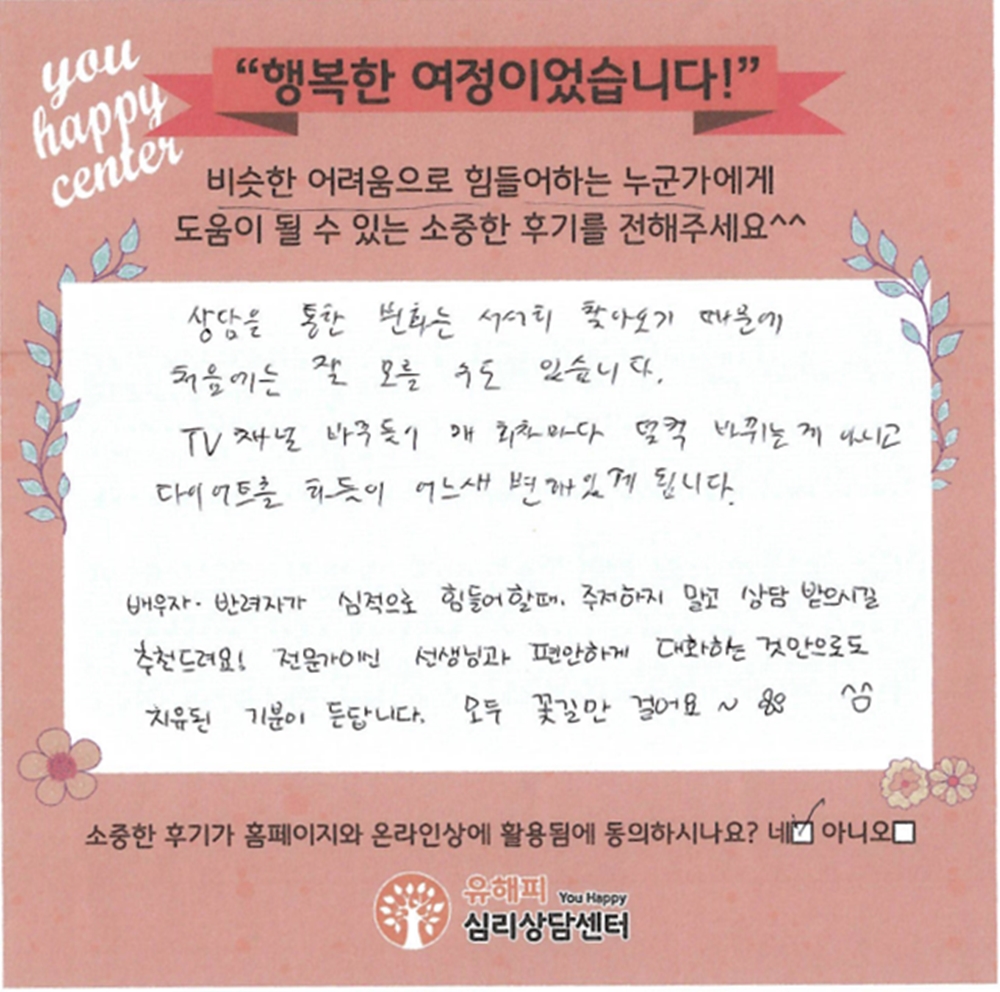 you
happy
center
“행복한 여정이었습니다!”
비슷한 어려움으로 힘들어하는 누군가에게
도움이 될 수 있는 소중한 후기를 전해주세요^^
상담을 통한 변화는 서서히 찾아오기 때문에
처음에는 잘 모를 수도 있습니다.
TV 채널 바꾸듯이 매 회차마다 덜컥 바뀌는게 아니고
다이어트를 하듯이 어느새 변해있게 됩니다.
배우자·반려자가 심적으로 힘들어할때, 주저하지 말고 상담 받으시길
추천드려요! 전문가이신 선생님과 편안하게 대화하는 것만으로도
치유된 기분이 든답니다. 모두 꽃길만 걸어요~ ^^
소중한 후기가 홈페이지와 온라인상에 활용됨에 동의하시나요? 네☑ 아니오□
유해피 You Happy
심리상담센터